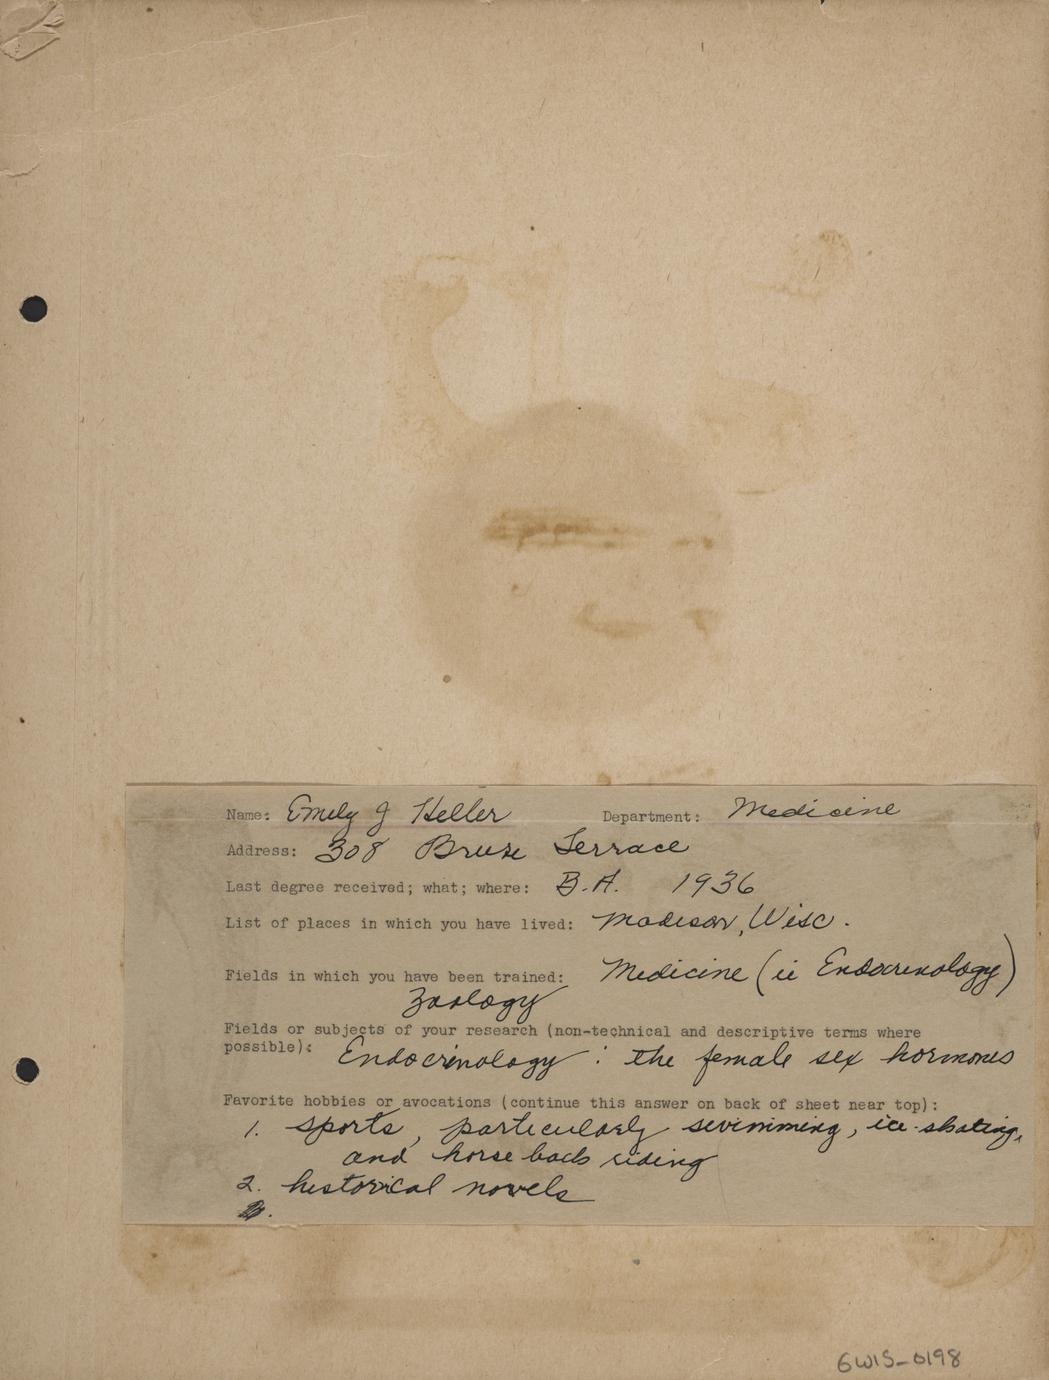 Name: Emily J Heller Department: Medicine
Address: 308 Bruse Terrace
Last degree received; what; where: B.A. 1936
List of places in which you have lived: Madison, Wisc.
Fields in which you have been trained: Medicine (ie Endocrinology)
Zoology
Fields or subjects of your research (non-technical and descriptive terms where
possible): Endocrinology : the female sex hormones
Favorite hobbies or avocations (continue this answer on back of sheet near top):
1. sports, particularly swimming, ice-skating,
and horse back riding
2. historical novels
GWIS-0198